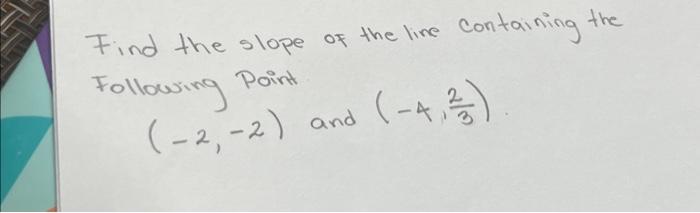 Find the slope of the line containing the
Following Point.
(-2, -2) and (-4, 2/3).